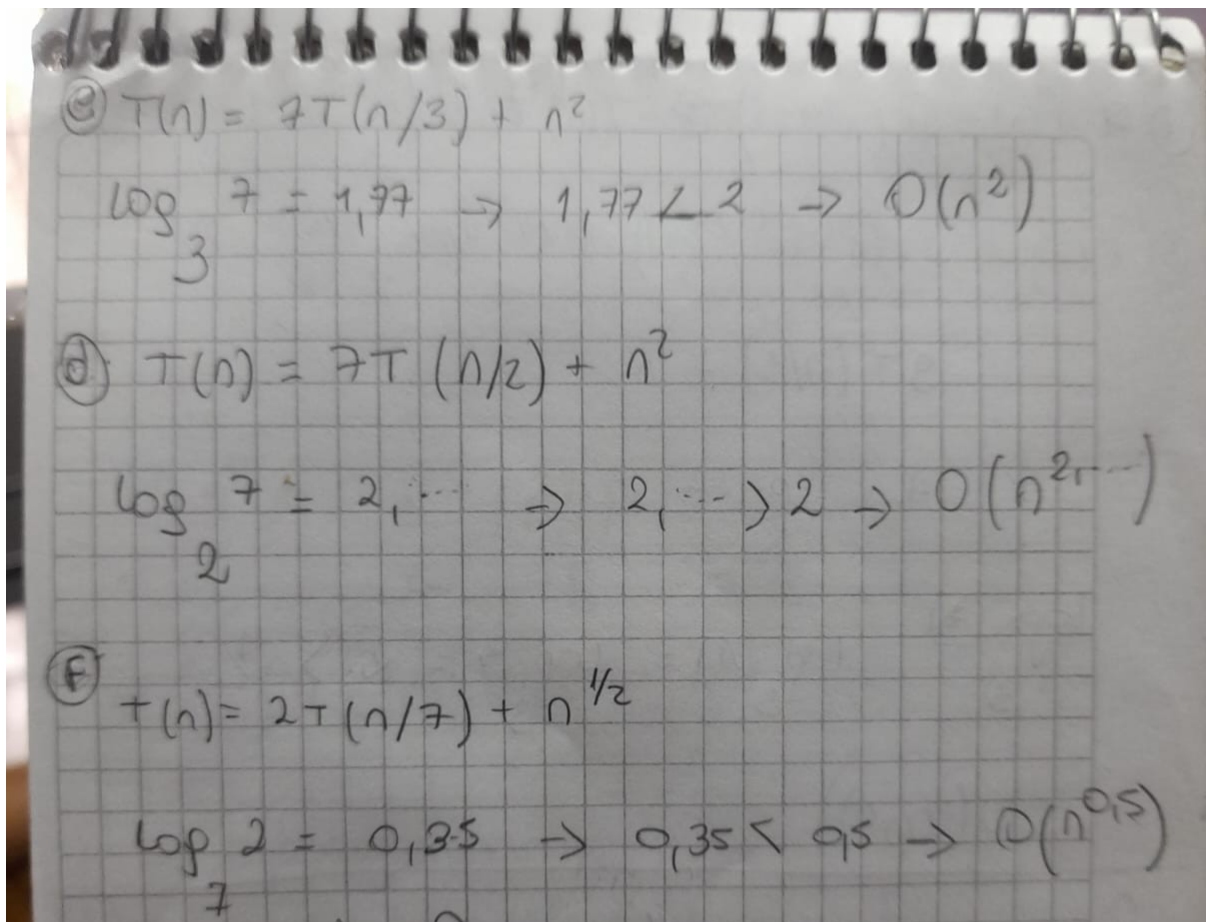 c T(n) = 7T(n/3) + n²
log₃ 7 = 1,77 → 1,77 < 2 → O(n²)
d T(n) = 7T (n/2) + n²
log₂ 7 = 2,... → 2,... > 2 → O(n²,...)
F
T(n) = 2T(n/7) + n^1/2
log₇ 2 = 0,35 → 0,35 < 0,5 → O(n^0,5)